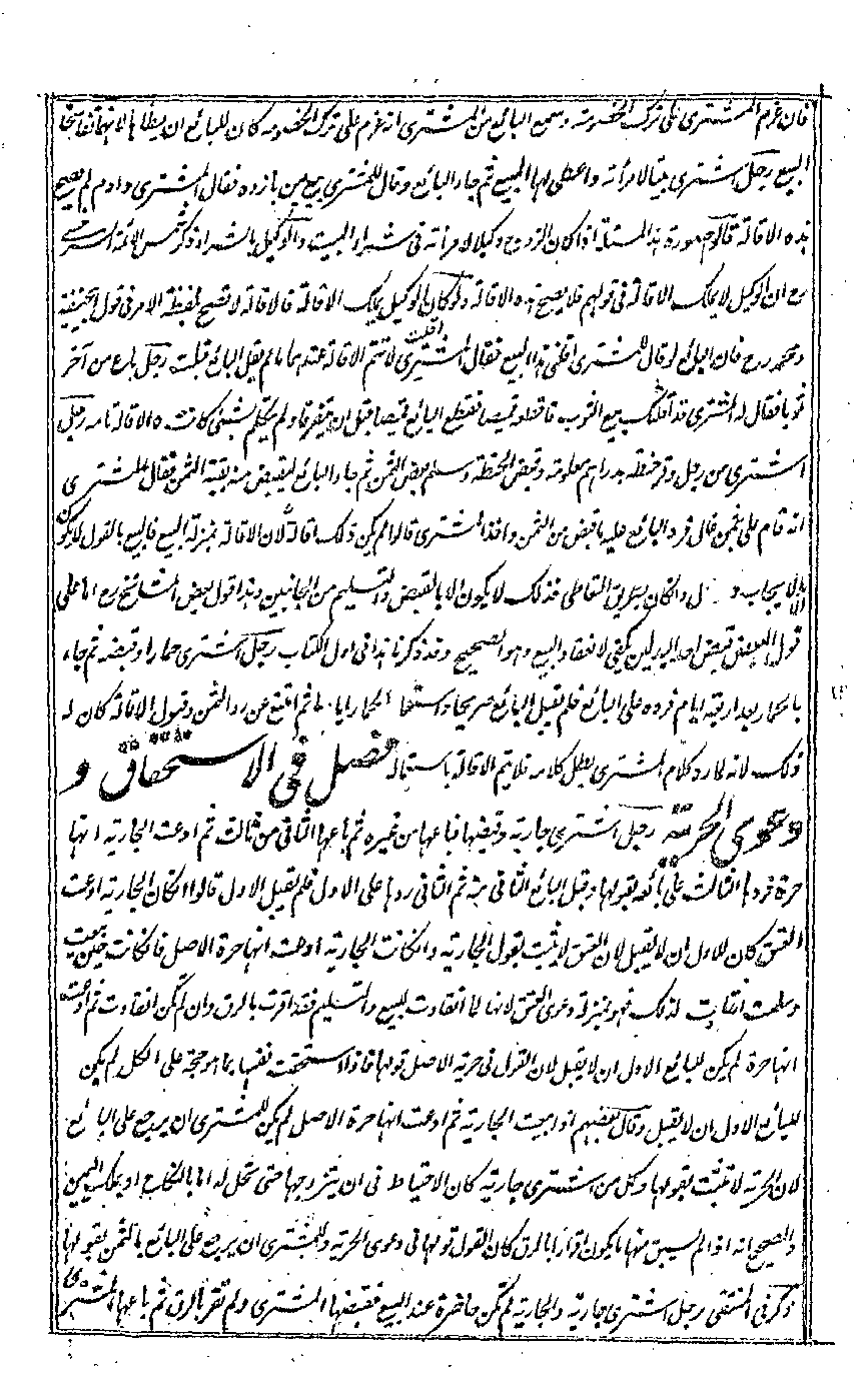 فان عزم المشترى على ترك الخصومة وسمع البائع من المشترى انه عزم على ترك الخصومة كان للبائع ان يطأها لانهما تفاسخا
البيع رجل اشترى بيتا لامرأته واعطى لها المبيع ثم جاء البائع وقال للمشترى فقال المشترى دادم لم يصح
هذه الاقالة قالوا صورة هذه المسئلة اذا كان الزوج وكيلا لامرأته فى شراء البيت والوكيل بالشراء ذكر شمس الائمة السرخسى
رح ان الوكيل لا يملك الاقالة فى قولهم فلا يصح هذه الاقالة ولو كان الوكيل يملك الاقالة فالاقالة لا تصح بلفظة الامر فى قول ابى حنيفة
ومحمد رح فان البائع لو قال للمشترى اقلنى هذا البيع فقال المشترى اقلت لا تتم الاقالة عندهما ما لم يقل البائع قبلت رجل باع من آخر
ثوبا فقال له المشترى قد اقلتك بيع الثوب فاقطعه قميصا فقطع البائع قميصا قبل ان يتفرقا ولم يتكلم بشئ كانت الاقالة تامة رجل
اشترى من رجل وقر حنطة بدراهم معلومة وقبض الحنطة وسلم بعض الثمن ثم جاء البائع ليقبض منه بقية الثمن فقال المشترى
انه قام على بثمن غال فرد البائع عليه ما قبض من الثمن واخذ المشترى قالوا لم يكن ذلك اقالة لان الاقالة بمنزلة البيع فالبيع بالقول لا يكون
الا بالايجاب و وان كان بطريق التعاطى فذلك لا يكون الا بالقبض والتسليم من الجانبين وهذا قول بعض المشائخ رح اما على
قول البعض قبض احد البدلين يكفى لانعقاد البيع وهو الصحيح وقد ذكرنا هذا فى اول الكتاب رجل اشترى حمارا وقبضه ثم جاء
بالحمار بعد اربعة ايام فرده على البائع فلم يقبل البائع صريحا واستعمل الحمار اياما ثم امتنع عن رد الثمن وقبول الاقالة كان له
ذلك لانه لما رد كلام المشترى بطل كلامه فلا يتم الاقالة باستعماله فصل فى الاستحقاق و
دعوى الحرية رجل اشترى جارية وقبضها فباعها من غيره ثم باعها الثانى من ثالث ثم ادعت الجارية انها
حرة فردها الثالث على بائعه بقولها وقبل البائع الثانى منه ثم الثانى ردها على الاول فلم يقبل الاول قالوا ان كان الجارية ادعت
العتق كان للاول ان لا يقبل لان العتق لا يثبت بقول الجارية وان كانت الجارية ادعت انها حرة الاصل فان كانت حين بيعت
وسلمت انقادت لذلك فهو بمنزلة دعوى العتق لانها لما انقادت للبيع والتسليم فقد اقرت بالرق وان لم تكن انقادت ثم ادعت
انها حرة لم يكن للبائع الاول ان لا يقبل لان القول فى حرية الاصل قولها فاذا استحقت نفسها بما هو حجة على الكل لم يكن
للبائع الاول ان لا يقبل وقال بعضهم اذا بيعت الجارية ثم ادعت انها حرة الاصل لم يكن للمشترى ان يرجع على البائع
لان الحرية لا تثبت بقولها وكل من اشترى جارية كان الاحتياط فى ان يتزوجها حتى تحل له اما بالنكاح او بملك اليمين
والصحيح انه اذا لم يسبق منها ما يكون اقرارا بالرق كان القول قولها فى دعوى الحرية وللمشترى ان يرجع على البائع بالثمن بقولها
ذكر فى المنتقى رجل اشترى جارية والجارية لم تكن حاضرة عند البيع فقبضها المشترى ولم تقر بالرق ثم باعها المشترى